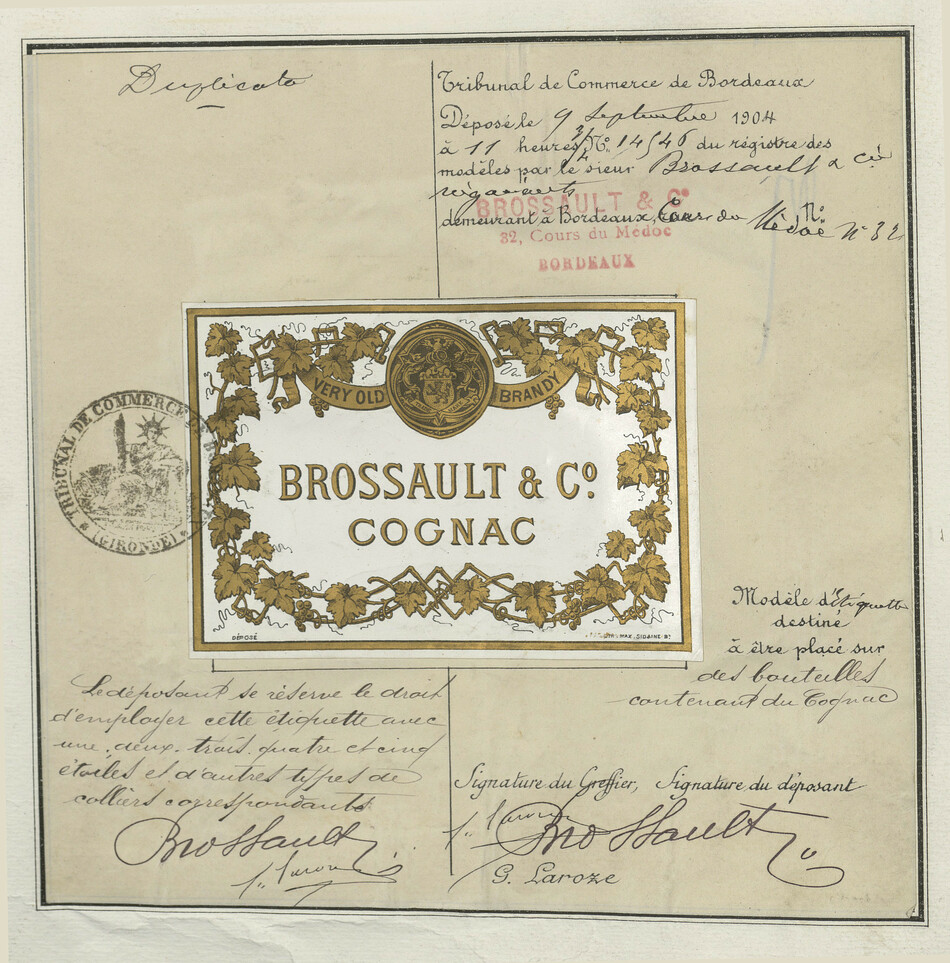 Duplicata
Tribunal de Commerce de Bordeaux
Déposé le 9 Septembre 1904
à 11 heures 3/4 No. 14546 du régistre des
modèles par le sieur Brossault & Cie
négociants
BROSSAULT & Co
demeurant à Bordeaux, Cours du Médoc No 32
32, Cours du Médoc
BORDEAUX
VERY OLD BRANDY
BROSSAULT & Co.
COGNAC
DÉPOSÉ
TRIBUNAL DE COMMERCE DE
(GIRONDE)
Modèle d'Etiquette
destiné
à être placé sur
des bouteilles
contenant du Cognac
Le déposant se réserve le droit
d'employer cette étiquette avec
une, deux, trois, quatre et cinq
étoiles et d'autres types de
colliers correspondants
Brossault
Signature du Greffier, Signature du déposant
Brossault
G. Laroze